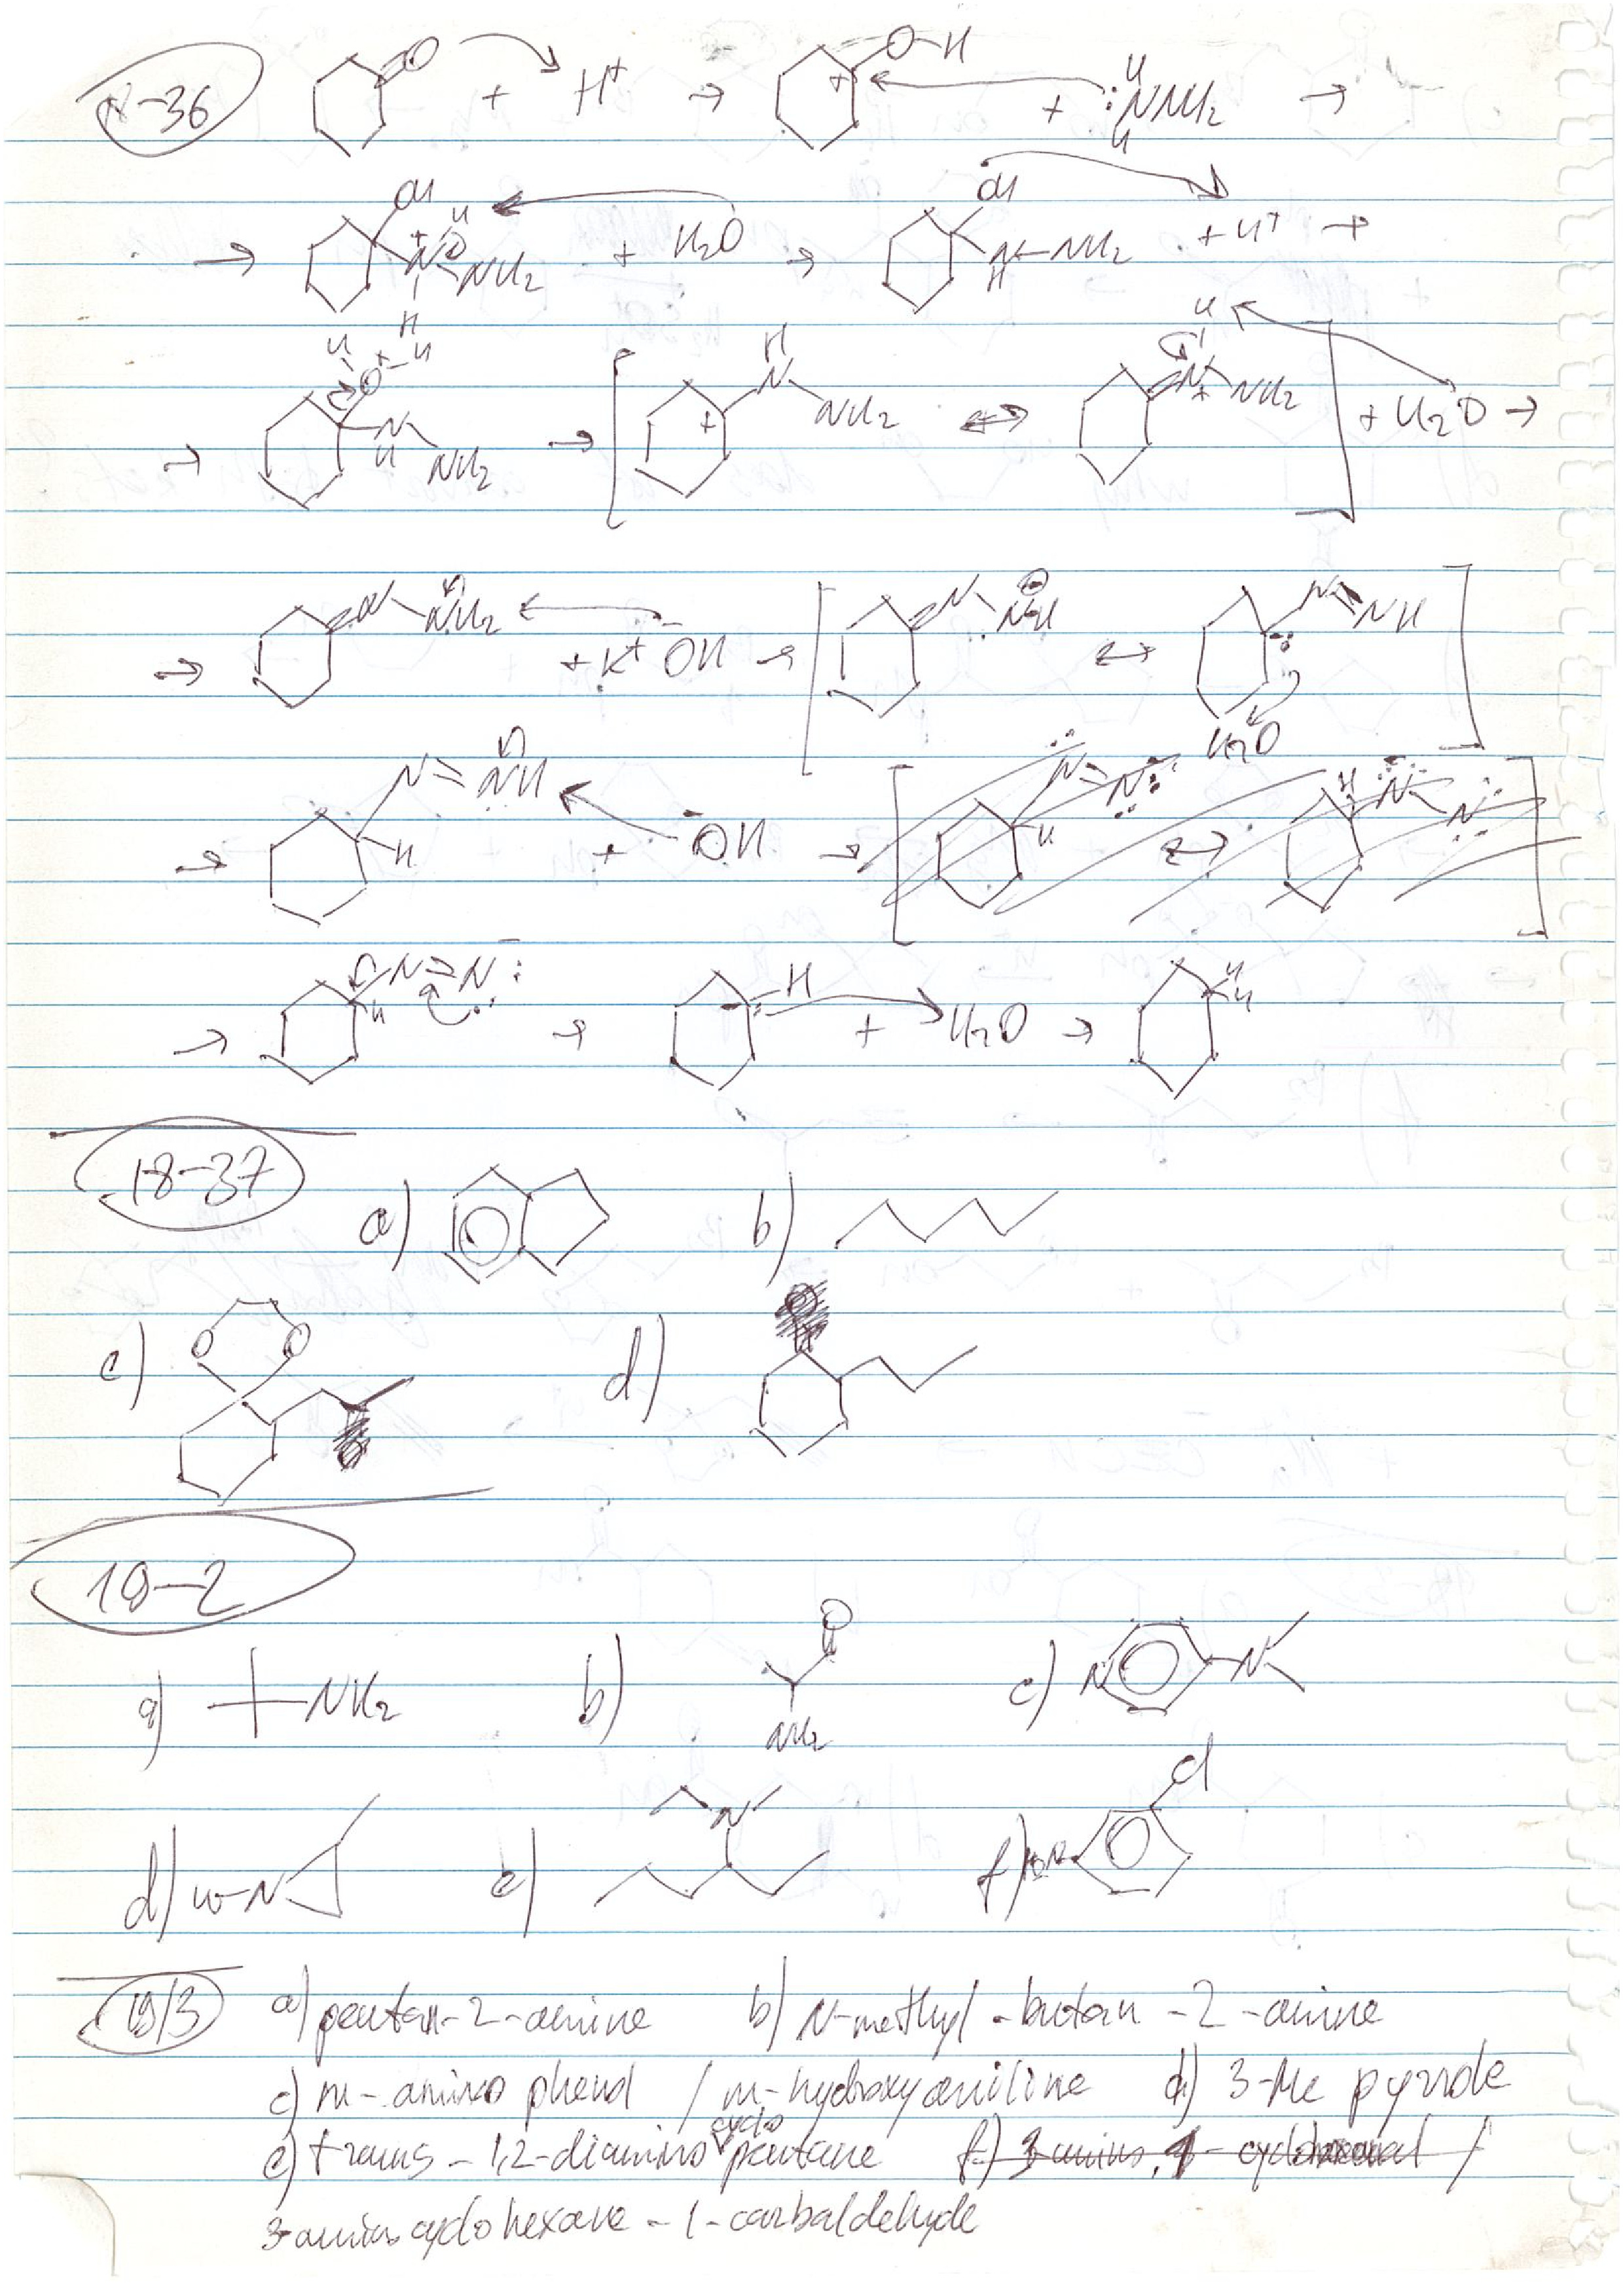 -36 O + H⁺ → O-H + + :NNH₂ H H →
→ OH N⁺ H NH₂ + H₂O → OH N-NH₂ H + H⁺ →
→ H O⁺-H N H NH₂ → [ + N H NH₂ ↔ N⁺ H NH₂ ] + H₂O →
→ N NH₂ + K⁺ ⁻OH → [ N NH ⊖ ↔ N=NH ] H₂O
→ N=NH H + ⁻OH → [ N=N: H ↔ H N N ]
→ N=N:⁻ H → H + H₂O → H H
18-37 a) b)
c) O O d)
19-2
a) NH₂ b) O NH₂ c) N N
d) N e) N f) H₂N Cl
19/3 a) pentan-2-amine b) N-methyl-butan-2-amine
c) m-aminophenol / m-hydroxyaniline d) 3-Me pyrrole
e) trans-1,2-diaminocyclopentane f)
3-aminocyclohexane-1-carbaldehyde